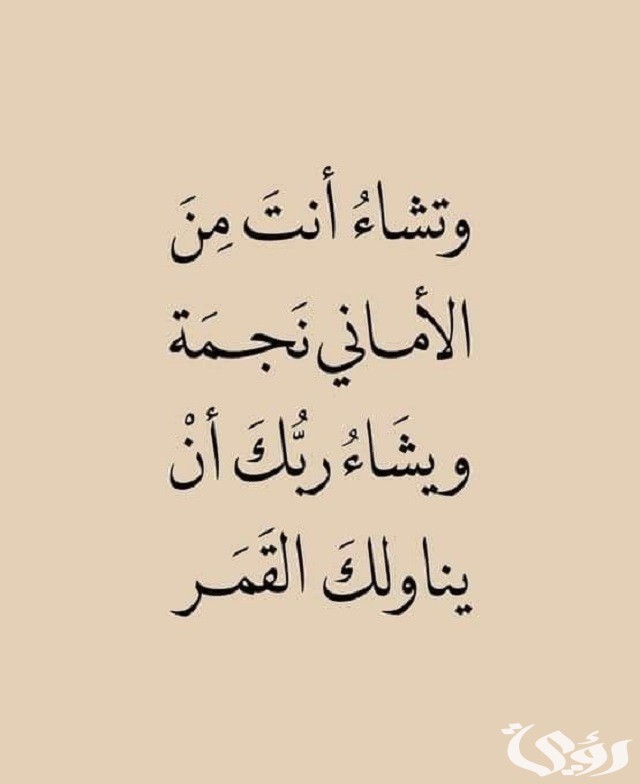 وتشاءُ أنتَ مِنَ
الأماني نَجمَة
ويشَاءُ ربُّكَ أنْ
يناولكَ القَمَر
رؤية